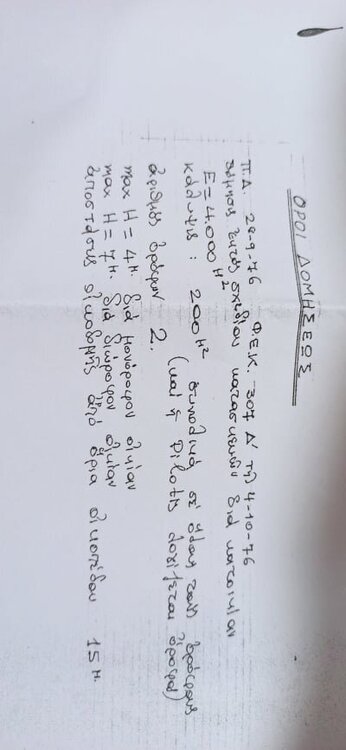 ΟΡΟΙ ΔΟΜΗΣΕΩΣ
Π.Δ. 28-9-76 Φ.Ε.Κ. 307 Δ' τῇ 4-10-76
ἐκτός σχεδίου κατασκευῶν διά κατοικίαν
E = 4.000 Μ²
κάλυψις : 200 Μ² συνολικά σέ ὅλους τούς ὀρόφους
(καί ἡ Pilotis λογίζεται ὄροφος)
ἀριθμός ὀρόφων 2.
max H = 4 Μ. διά μονόροφον οἰκίαν
max H = 7 Μ. διά διώροφον οἰκίαν
ἀποστάσεις οἰκοδομῆς ἀπό ὅρια οἰκοπέδου 15 Μ.